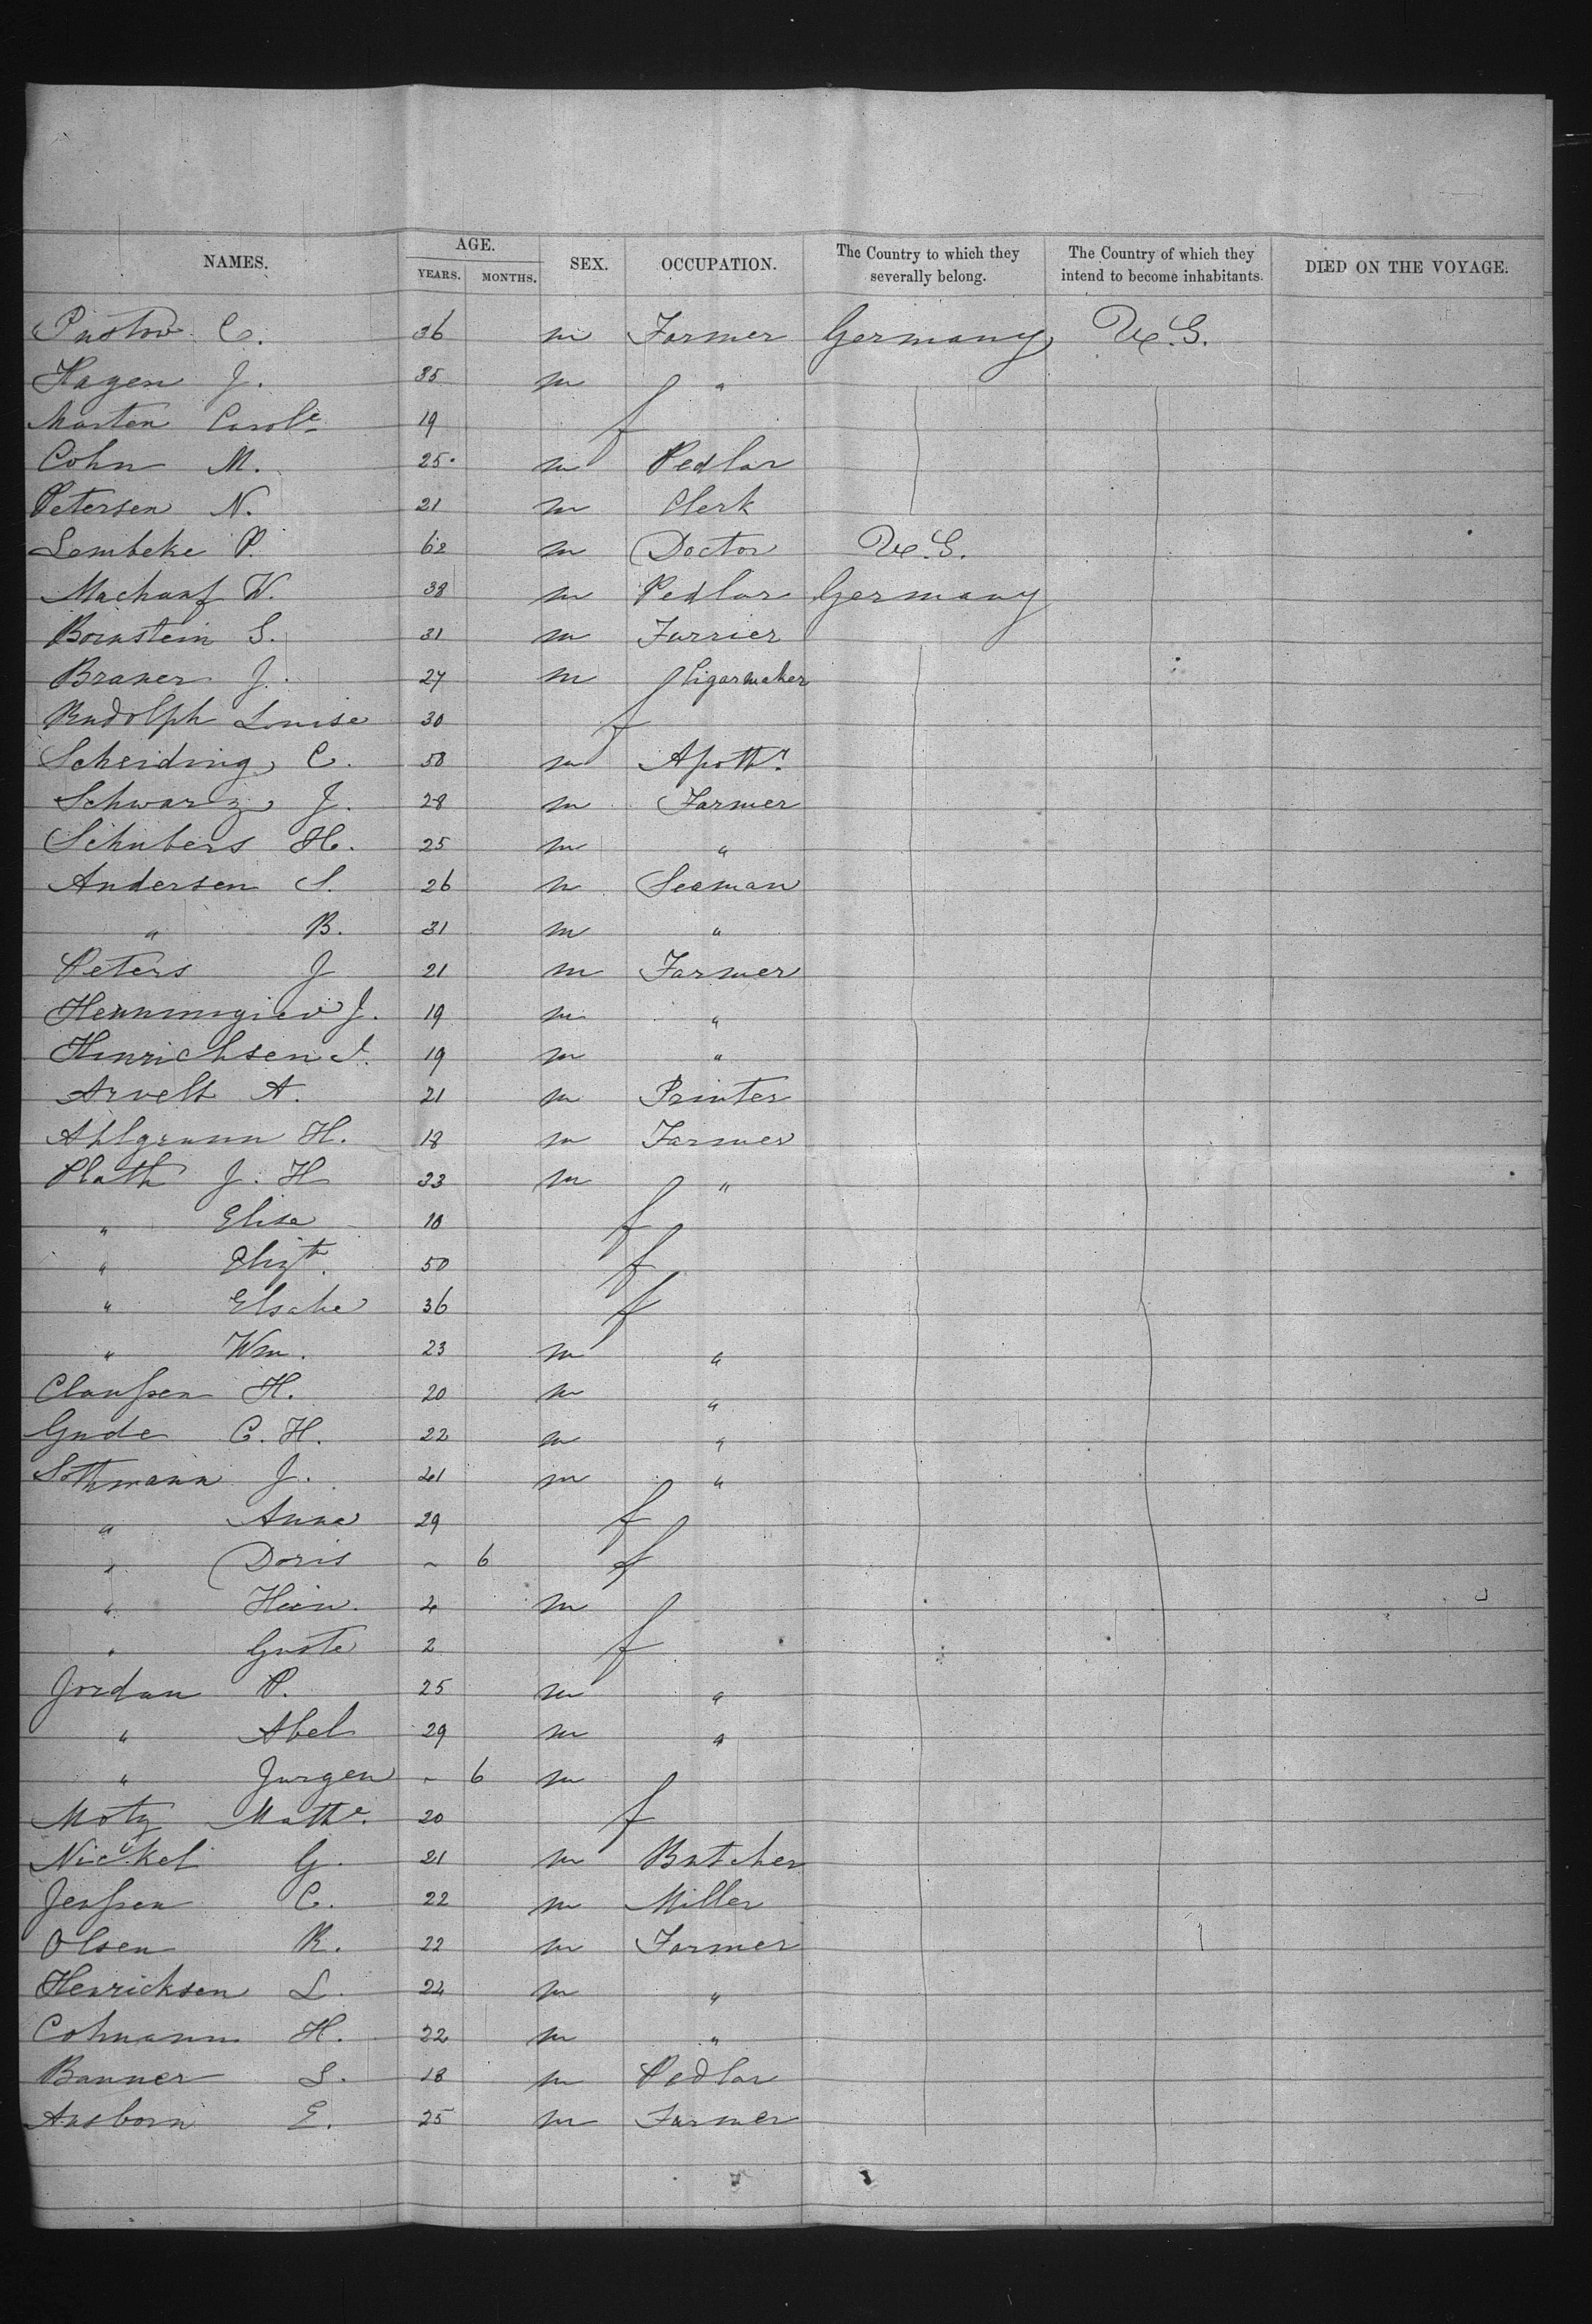 NAMES. AGE. SEX. OCCUPATION. The Country to which they severally belong. The Country of which they intend to become inhabitants. DIED ON THE VOYAGE.
YEARS. MONTHS.
Pustow C. 36 m Farmer Germany U.S.
Hagen J. 35 m "
Marten Carole 19 f
Cohn M. 25 m Pedlar
Petersen N. 21 m Clerk
Lembeke P. 62 m Doctor U.S.
W. 38 m Pedlar Germany
Bornstein S. 31 m Furrier
Braker J. 27 m Cigarmaker
Rudolph Louise 30 f
Scheiding C. 58 m Apothr.
Schwarz J. 28 m Farmer
Schubers H. 25 m "
Andersen S. 26 m Seaman
" B. 31 m "
Peters J 21 m Farmer
J. 19 m "
Hinrichsen 19 m "
Arvelt A. 21 m Printer
Ahlgrunn H. 18 m Farmer
Plath J. H 33 m "
" Elise 10 f
" Elizth. 50 f
" Elsabe 36 f
" Wm. 23 m "
Claussen H. 20 m "
Gude C. H. 22 m "
Sothmann J. 41 m "
" Anna 29 f
" Doris - 6 f
" Hein. 4 m
" Guste 2 f
Jordan P. 25 m "
" Abel 29 m "
" Jurgen - 6 m
Motz Mathe. 20 f
Nickel G. 21 m Butcher
Jenssen C. 22 m Miller
Olsen R. 22 m Farmer
Henricksen L. 24 m "
Cohnann H. 22 m "
Banner S. 18 m Pedlar
Ansborn E. 25 m Farmer